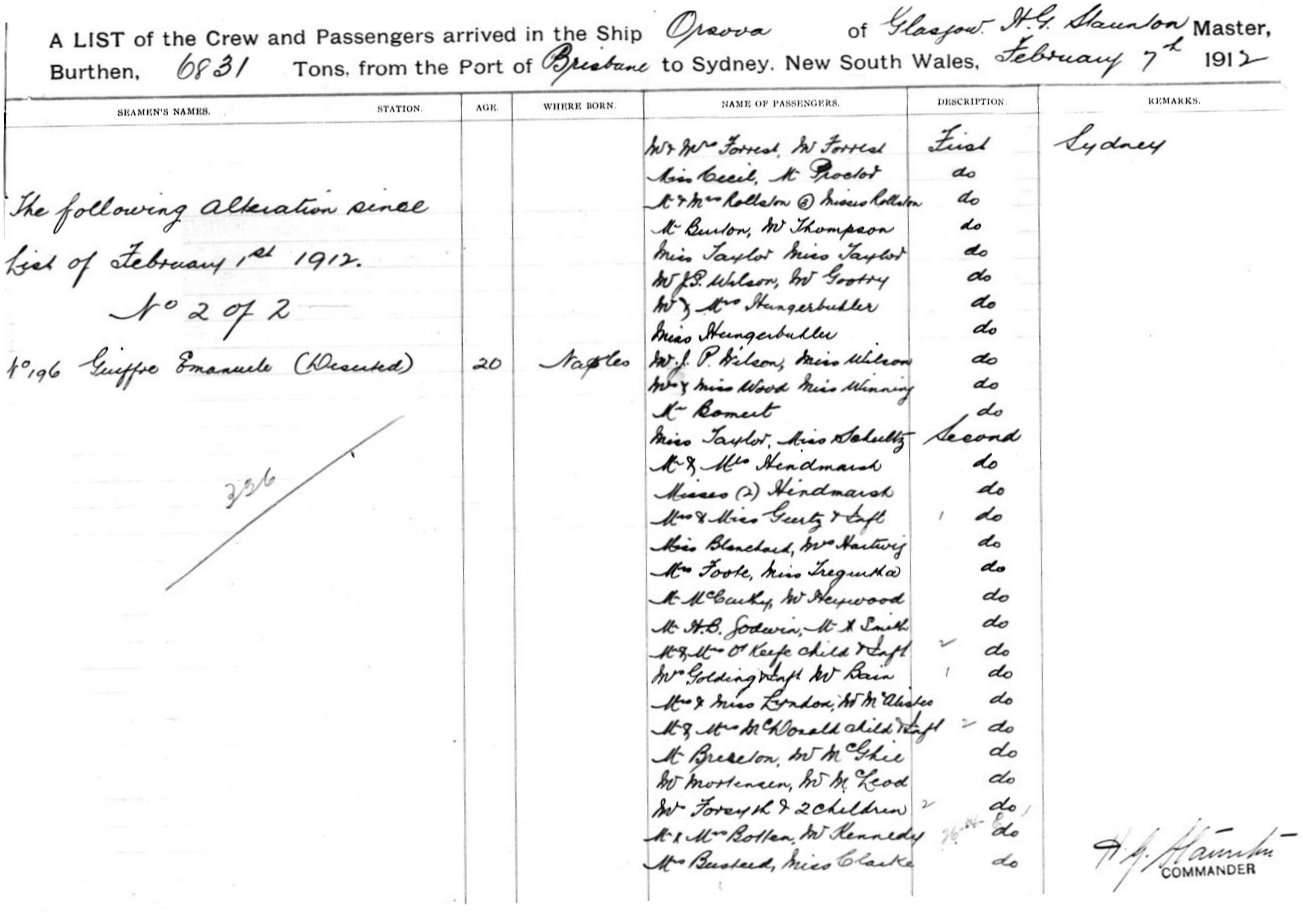 A LIST of the Crew and Passengers arrived in the Ship Orsova of Glasgow. H.G. Staunton Master,
Burthen, 6831 Tons, from the Port of Brisbane to Sydney, New South Wales, February 7th 1912
SEAMEN'S NAMES. STATION. AGE. WHERE BORN. NAME OF PASSENGERS. DESCRIPTION. REMARKS.
Mr & Mrs Forrest, Mr Forrest First Sydney
Miss Cecil, Mr Proctor do
Mr & Mrs Rollston Misses Rollston do
The following alteration since
Mr Burton, Mr Thompson do
Miss Taylor Miss Taylor do
List of February 1st 1912.
Mr J.P. Wilson, Mr do
No 2 of 2
Mr & Mrs Hungerbuhler do
Miss Hungerbuhler do
No 196 Giuffre Emanuele (Deserted) 20 Naples Mr J. P. Wilson, Miss Wilson do
Mrs & Miss Wood Miss Winning do
Mr do
Miss Taylor, Miss Schultz Second
Mr & Mrs Hindmarsh do
326
Misses (2) Hindmarsh do
Mrs & Miss Geertz & Inft 1 do
Miss Blanchard, Mrs Hartwig do
Mrs Foote, Miss Tregurtha do
Mr McCarthy, Mr Heywood do
Mr H.B. Godwin, Mr A Smith do
Mr & Mrs O'Keefe child & Inft 2 do
Mrs Golding & Inft Mr Bain 1 do
Mrs & Miss Lyndon, Mr McAlister do
Mr & Mrs McDonald child & Inft 2 do
Mr Brereton, Mr McGhie do
Mr Mortensen, Mr McLeod do
Mrs Forsyth & 2 children 2 do
Mr & Mrs Botten, Mr Kennedy do
Mrs Busteed, Miss Clarke do
H.G. Staunton
COMMANDER